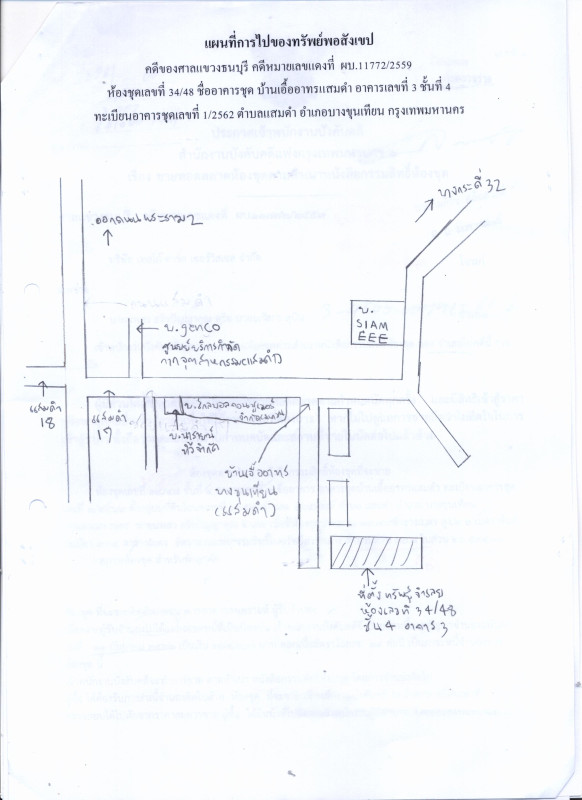 แผนที่การไปของทรัพย์พอสังเขป
คดีของศาลแขวงธนบุรี คดีหมายเลขแดงที่ ผบ.11772/2559
ห้องชุดเลขที่ 34/48 ชื่ออาคารชุด บ้านเอื้ออาทรแสมดำ อาคารเลขที่ 3 ชั้นที่ 4
ทะเบียนอาคารชุดเลขที่ 1/2562 ตำบลแสมดำ อำเภอบางขุนเทียน กรุงเทพมหานคร
บางกระดี่ 32
ออกถนนพระราม 2
บ. genco
ศูนย์บริการกำจัด
กากอุตสาหกรรม(แสมดำ)
บ.
SIAM
EEE
แสมดำ
18
แสมดำ
17
บ.นารายณ์
จำกัด
บ้านเอื้ออาทร
บางขุนเทียน
(แสมดำ)
ที่ตั้งทรัพย์จำเลย
ห้องเลขที่ 34/48
ชั้น 4 อาคาร 3